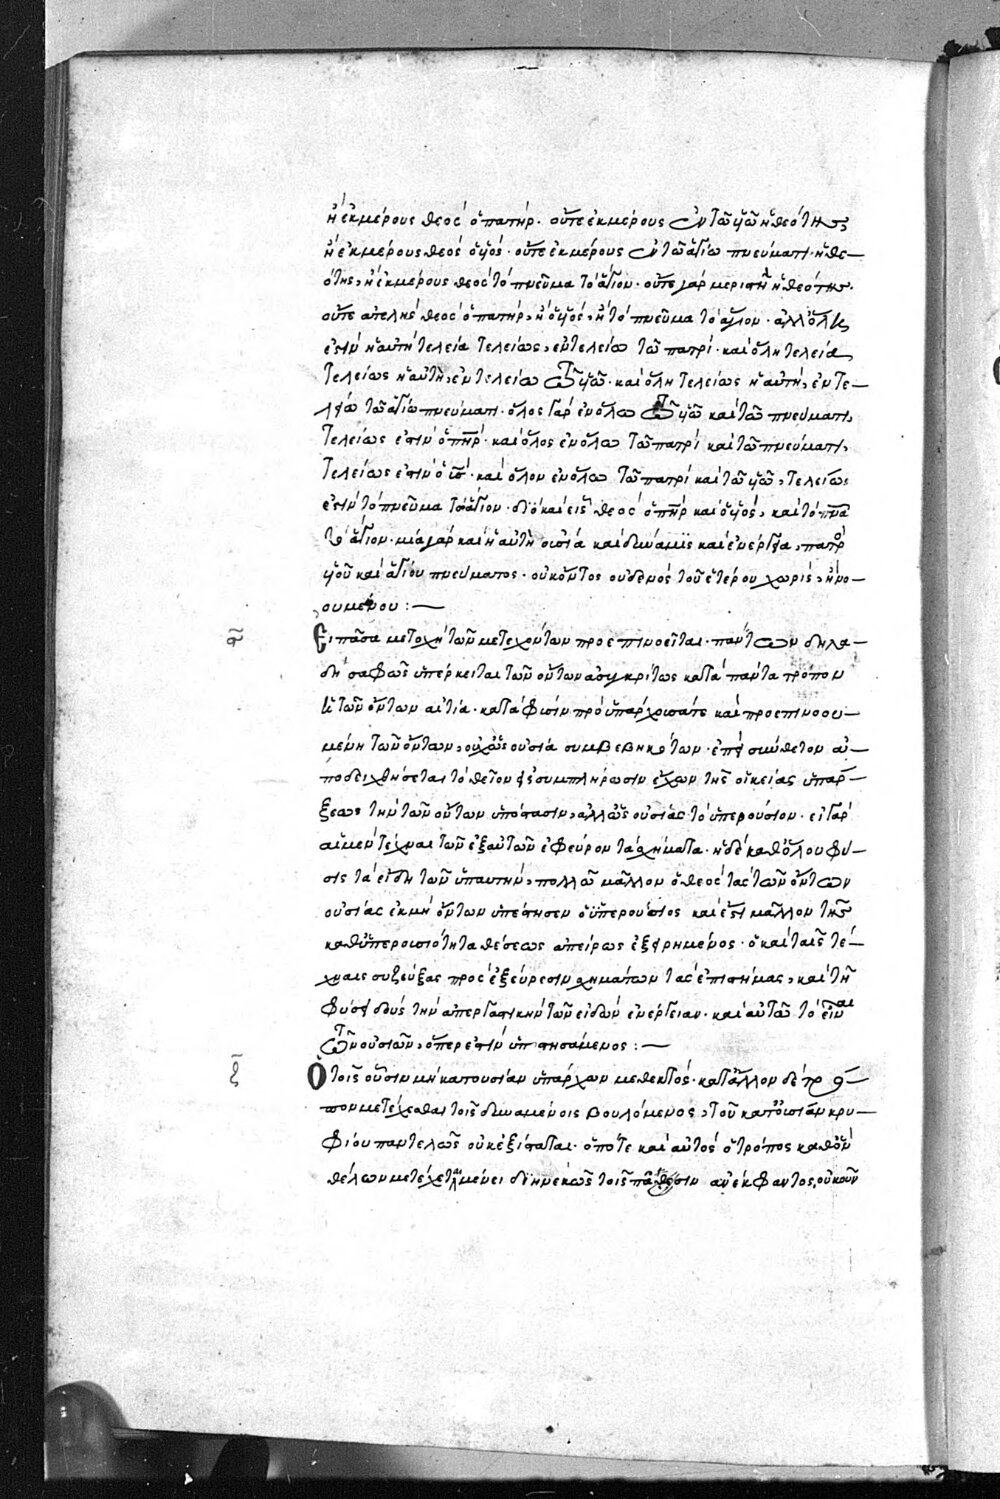 ἢ ἐκμέρους θεὸς ὁ πατήρ. οὔτε ἐκμέρους ἐν τῶ υἱῶ ἡ θεότης
ἢ ἐκμέρους θεὸς ὁ υἱός. οὔτε ἐκμέρους ἐν τῶ ἁγίω πνεύματι ἡ θε-
ότης, ἢ ἐκμέρους θεὸς τὸ πνεῦμα τὸ ἅγιον. οὔτε γὰρ μεριστὴ ἡ θεότης.
οὔτε ἀτελὴς θεὸς ὁ πατὴρ, ἢ ὁ υἱὸς, ἢ τὸ πνεῦμα τὸ ἅγιον. ἀλλ' ὅλη
ἐστὶν ἡ αὐτὴ τελεία τελείως, ἐν τελείω τῶ πατρὶ. καὶ ὅλη τελεία
τελείως ἡ αὐτὴ, ἐν τελείω τῶ υἱῶ. καὶ ὅλη τελείως ἡ αὐτὴ, ἐν τε-
λείω τῶ ἁγίω πνεύματι. ὅλος γὰρ ἐν ὅλω τῶ υἱῶ καὶ τῶ πνεύματι,
τελείως ἐστὶν ὁ πηρ. καὶ ὅλος ἐν ὅλω τῶ πατρὶ καὶ τῶ πνεύματι,
τελείως ἐστὶν ὁ υσ. καὶ ὅλον ἐν ὅλω τῶ πατρὶ καὶ τῶ υἱῶ, τελείως
ἐστὶν τὸ πνεῦμα τὸ ἅγιον. διὸ καὶ εἷς θεὸς ὁ πηρ καὶ ὁ υἱός, καὶ τὸ πνα
τὸ ἅγιον. μία γὰρ καὶ ἡ αὐτὴ οὐσία καὶ δύναμις καὶ ἐνέργεια, πατρὸ
υἱοῦ καὶ ἁγίου πνεύματος. οὐκ ὄντος οὐδενὸς τοῦ ἑτέρου χωρὶς, ἢ νο-
ουμένου :-
Εἰ πᾶσα μετοχὴ τῶν μετεχόντων προεπινοεῖται. πάντων δηλα-
δὴ σαφῶς ὑπέρκειται τῶν ὄντων ἀσυγκρίτως κατὰ πάντα τρόπον
ἡ τῶν ὄντων αἰτία. κατὰ φύσιν προϋπάρχουσά τε καὶ προεπινοου-
μένη τῶν ὄντων, οὐχ ὡς οὐσία συμβεβηκότων. ἐπεὶ σύνθετον ἀ-
ποδειχθήσεται τὸ θεῖον εἰς συμπλήρωσιν ἔχων τῆς οἰκείας ὑπάρ-
ξεως τὴν τῶν ὄντων ὑπόστασιν, ἀλλ' ὡς οὐσίας τὸ ὑπερούσιον. εἰ γὰρ
αἱ μὲν τέχναι τῶν ἐξ αὐτῶν ἐφεῦρον τὰ σχήματα. ἡ δὲ καθόλου φύ-
σις τὰ εἴδη τῶν ὑπαυτὴν, πολλῶ μᾶλλον ὁ θεὸς τὰς τῶν ὄντων
οὐσίας ἐκ μὴ ὄντων ὑπέστησεν ὁ ὑπερούσιος καὶ ἔτι μᾶλλον τῆς
καθ' ὑπερουσιότητα θέσεως ἀπείρως ἐξηρημένος. ὁ καὶ ταῖς τέ-
χναις συζεύξας πρὸς ἐξεύρεσιν σχημάτων τὰς ἐπιστήμας, καὶ τῆ
φύσει δοὺς τὴν ἀπεργαστικὴν τῶν εἰδῶν ἐνέργειαν. καὶ αὐτὸ τὸ εἶναι
τῶν οὐσιῶν, ὅπερ ἐστὶν ὑποστησάμενος :-
Ὁ τοῖς οὖσιν μὴ κατουσίαν ὑπάρχων μεθεκτός. κατ' ἄλλον δὲ τρό-
πον μετέχεσθαι τοῖς δυναμένοις βουλόμενος, τοῦ κατ' οὐσίαν κρυ-
φίου παντελῶς οὐκ ἐξίσταται. ὁπότε καὶ αὐτὸς ὁ τρόπος καθ' ὃν
θέλων μετέχεται μένει διηνεκῶς τοῖς πᾶσιν ἀνέκφαντος. οὐκοῦν